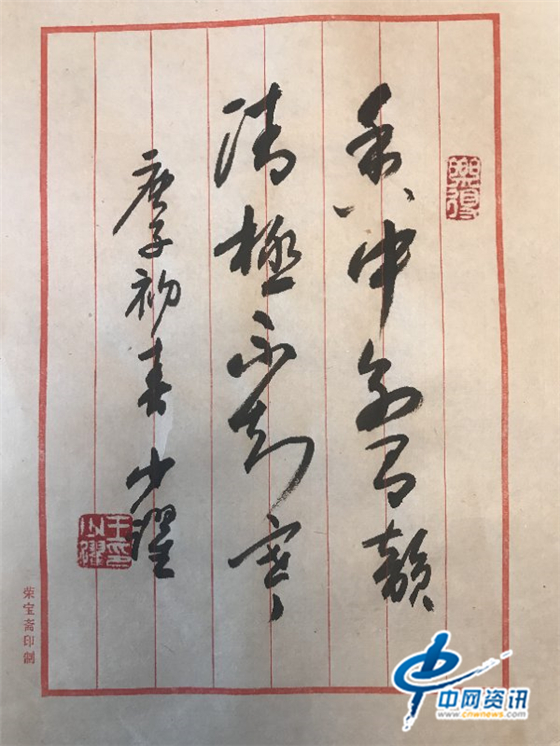 香中别有韻
清極不知寒
庚子初春 少躍
荣宝斋印制
中网资讯
www.cnwnews.com